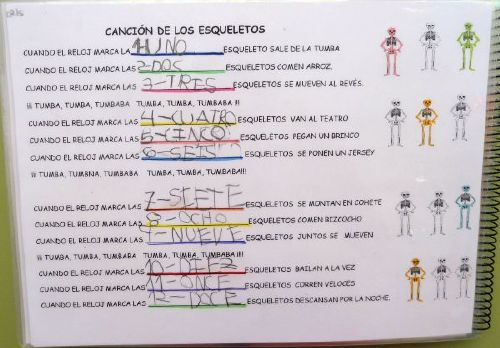 CANCIÓN DE LOS ESQUELETOS
CUANDO EL RELOJ MARCA LA 1-UNO ESQUELETO SALE DE LA TUMBA
CUANDO EL RELOJ MARCA LAS 2-DOS ESQUELETOS COMEN ARROZ,
CUANDO EL RELOJ MARCA LAS 3-TRES ESQUELETOS SE MUEVEN AL REVÉS.
¡¡¡ TUMBA, TUMBA, TUMBABA TUMBA, TUMBA, TUMBABA !!!
CUANDO EL RELOJ MARCA LAS 4-CUATRO ESQUELETOS VAN AL TEATRO
CUANDO EL RELOJ MARCA LAS 5-CINCO ESQUELETOS PEGAN UN BRINCO
CUANDO EL RELOJ MARCA LAS 6-SEIS ESQUELETOS SE PONEN UN JERSEY
¡¡¡ TUMBA, TUMBNA, TUMBABA TUMBA, TUMBA, TUMBABA!!!
CUANDO EL RELOJ MARCA LAS 7-SIETE ESQUELETOS SE MONTAN EN COHETE
CUANDO EL RELOJ MARCA LAS 8-OCHO ESQUELETOS COMEN BIZCOCHO
CUANDO EL RELOJ MARCA LAS 9-NUEVE ESQUELETOS JUNTOS SE MUEVEN
¡¡¡ TUMBA, TUMBA, TUMBABA TUMBA, TUMBA, TUMBABA!!!
CUANDO EL RELOJ MARCA LAS 10-DIEZ ESQUELETOS BAILAN A LA VEZ
CUANDO EL RELOJ MARCA LAS 11-ONCE ESQUELETOS CORREN VELOCES
CUANDO EL RELOJ MARCA LAS 12-DOCE ESQUELETOS DESCANSAN POR LA NOCHE.